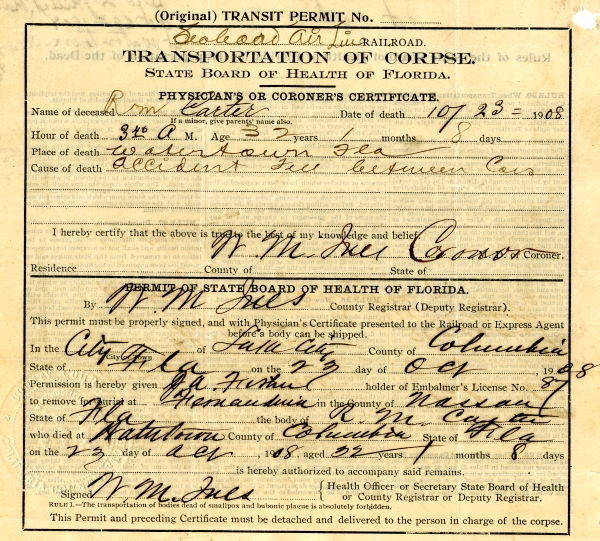 (Original) TRANSIT PERMIT No.
Seaboard Air Line RAILROAD.
TRANSPORTATION OF CORPSE.
STATE BOARD OF HEALTH OF FLORIDA.
PHYSICIAN'S OR CORONER'S CERTIFICATE.
Name of deceased R m Carter Date of death 10/ 23 = 1908
If a minor, give parents' name also.
Hour of death 3 40 A M. Age 32 years 1 months 8 days
Place of death Watertown Fla
Cause of death Accident Fell between Cars
I hereby certify that the above is true to the best of my knowledge and belief.
W. M. Ives Coronor Coroner.
Residence County of State of
PERMIT OF STATE BOARD OF HEALTH OF FLORIDA.
By W. M Ives County Registrar (Deputy Registrar).
This permit must be properly signed, and with Physician's Certificate presented to the Railroad or Express Agent
before a body can be shipped.
In the City of Lake City County of Columbia
City or Town
State of Fla on the 23 day of Oct 1908
Permission is hereby given holder of Embalmer's License No. 87
to remove for burial at Fernandina in the County of Nassau
State of Fla the body of R. M. Carter
who died at Watertown County of Columbia State of Fla
on the 23 day of Oct 1908, aged 32 years 1 months 8 days
is hereby authorized to accompany said remains.
Signed W M. Ives { Health Officer or Secretary State Board of Health
or County Registrar or Deputy Registrar.
RULE 1.—The transportation of bodies dead of smallpox and bubonic plague is absolutely forbidden.
This Permit and preceding Certificate must be detached and delivered to the person in charge of the corpse.